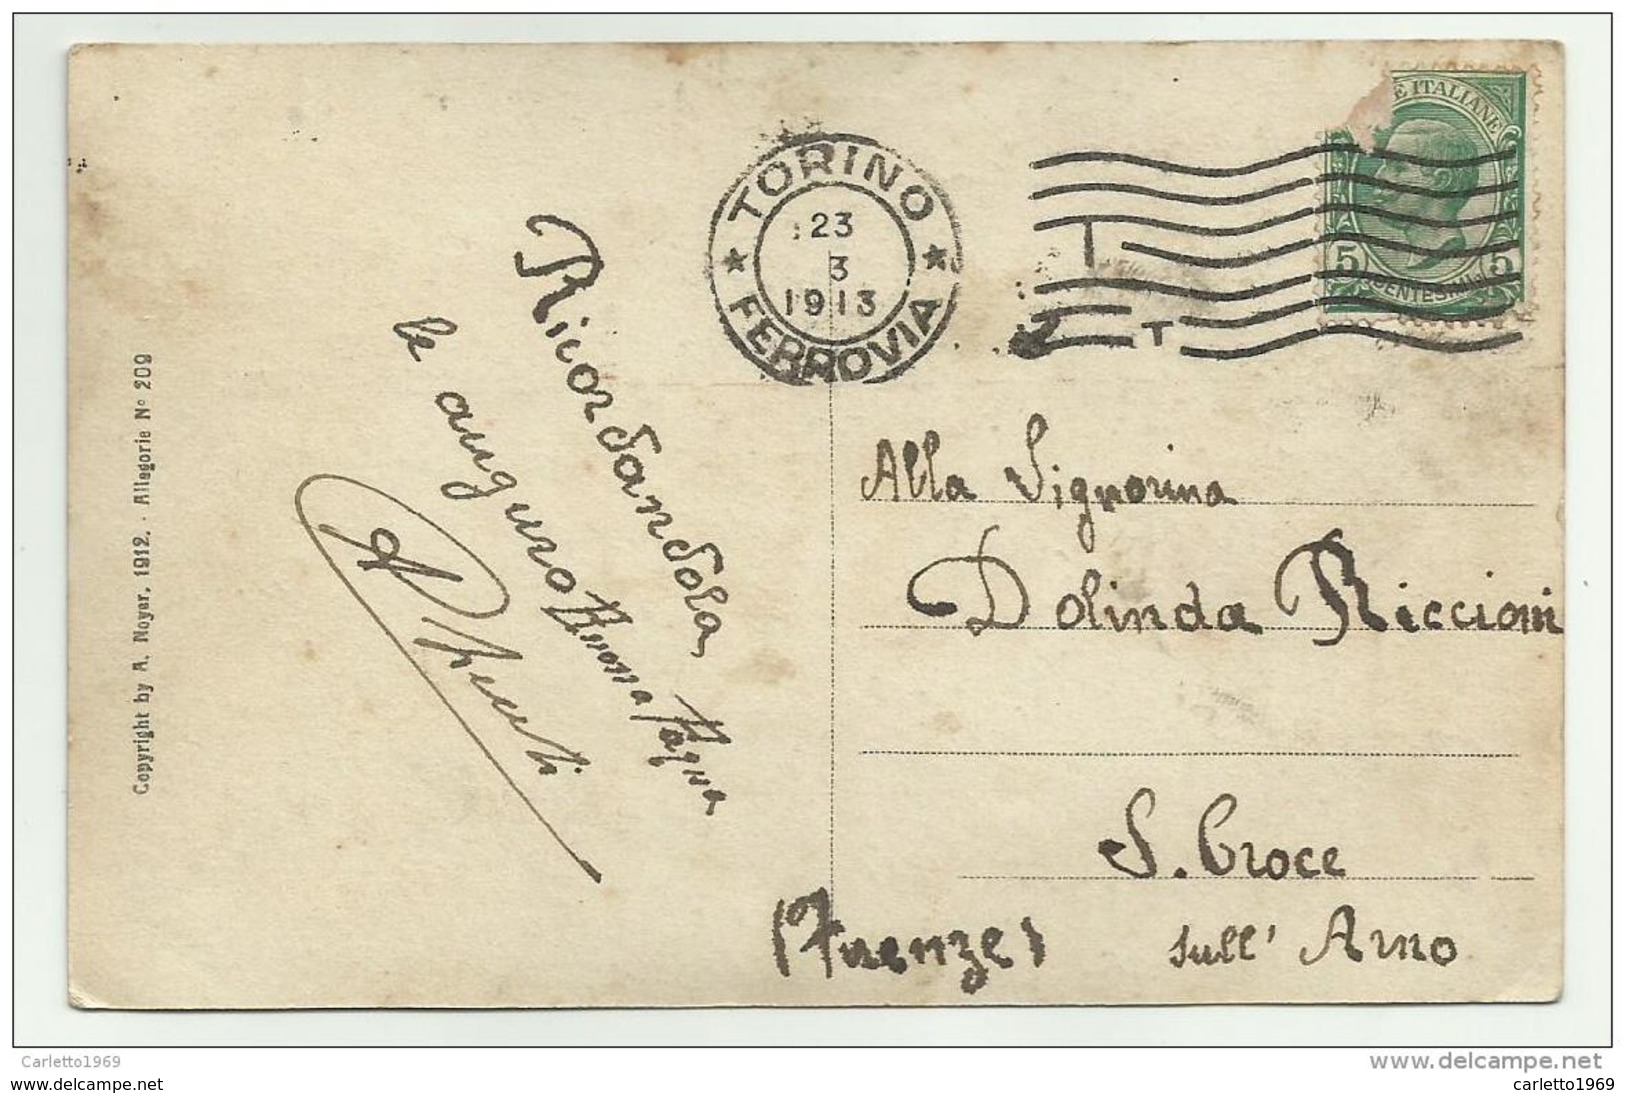 TORINO
23
3
1913
FERROVIA
E ITALIANE
5 CENTESIMI 5
Ricordandola,
le auguro Buona Pasqua
Alla Signorina
Dolinda Riccioni
S. Croce
sull' Arno
(Firenze)
Copyright by A. Noyer, 1912. - Allegorie N° 209
Carletto1969
www.delcampe.net
www.delcampe.net
carletto1969